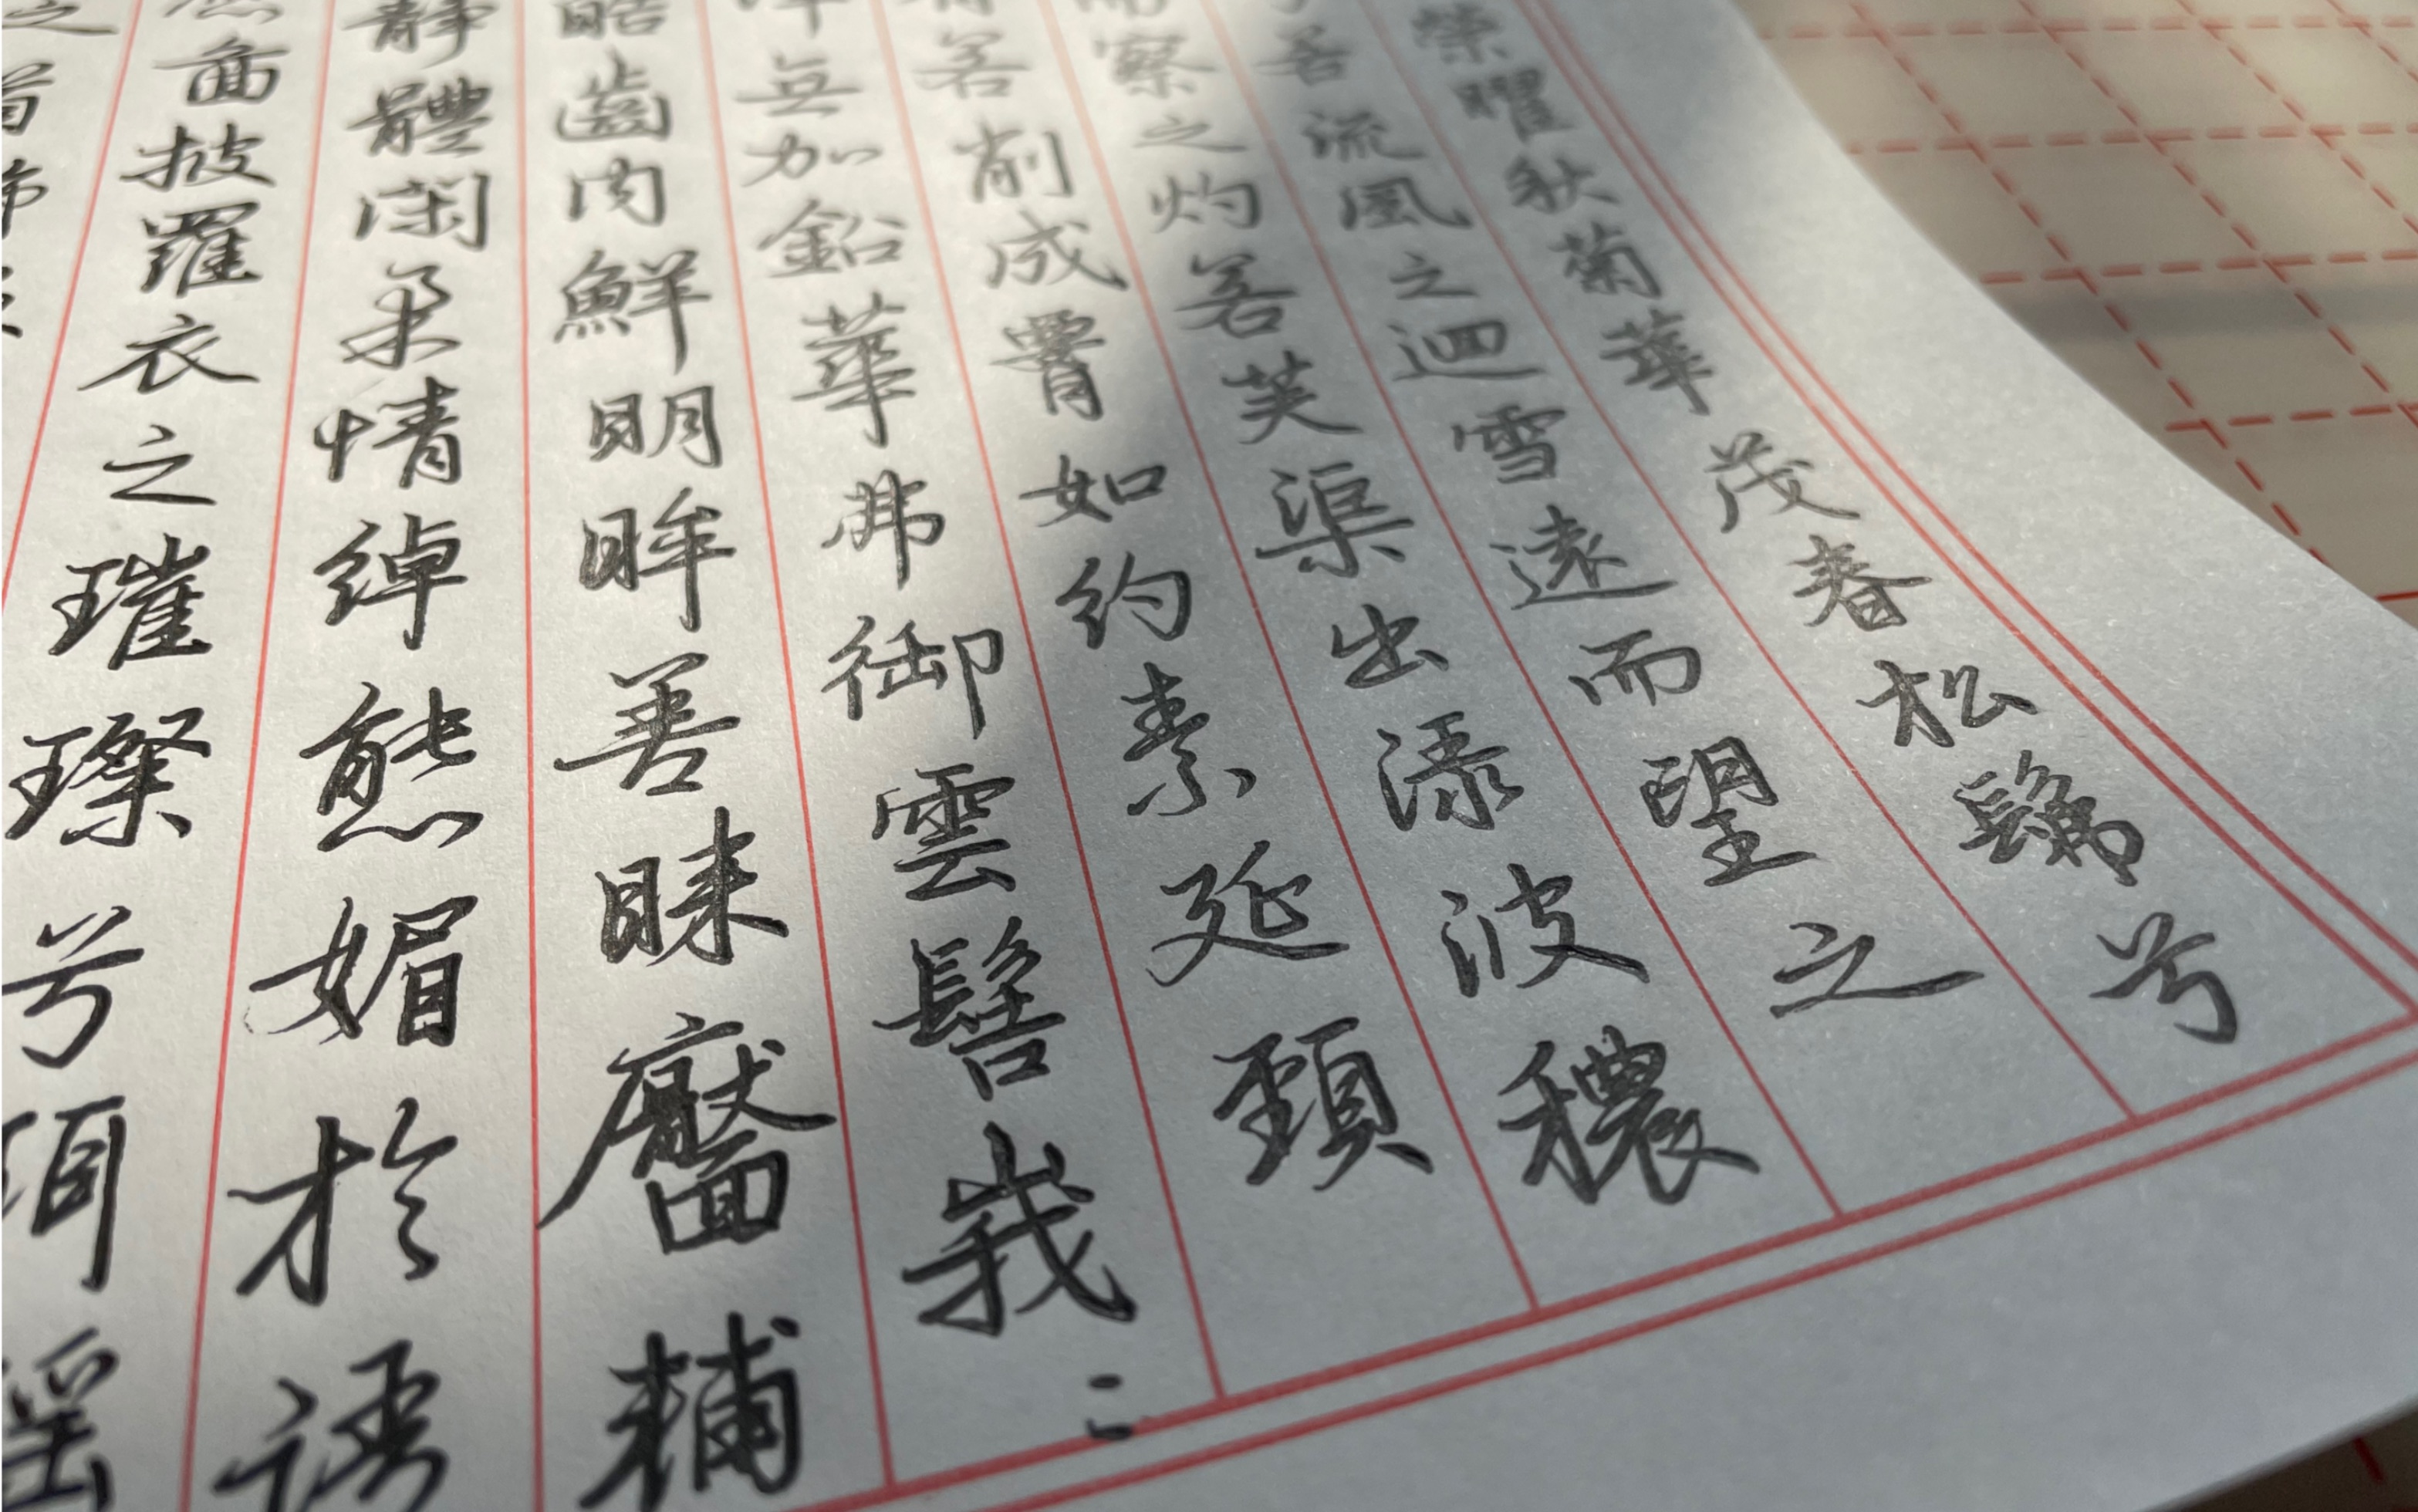 榮曜秋菊華茂春松髴兮
若流風之迴雪遠而望之
而察之灼若芙渠出淥波穠
若削成腰如約素延頸
無加鉛華弗御雲髻峩〻
皓齒内鮮明眸善睞靨輔
靜體閑柔情綽態媚於語
應圖披羅衣之璀璨兮珥瑤
之首飾